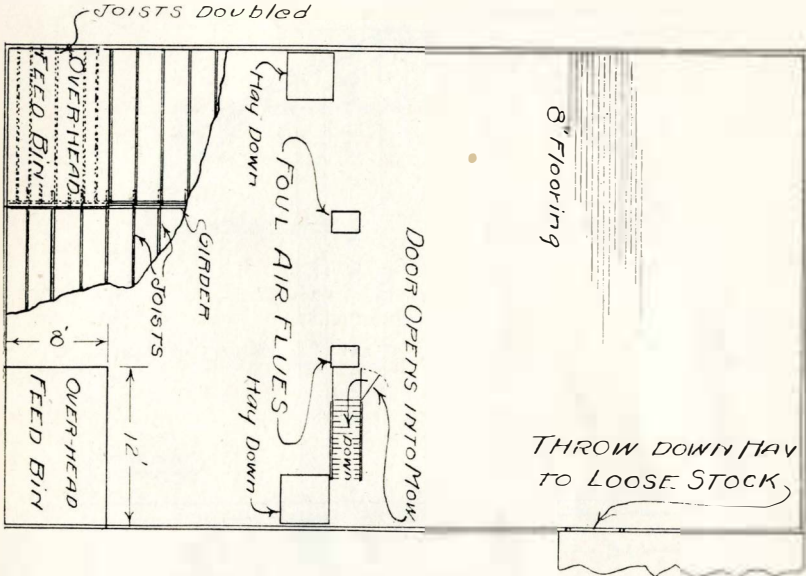 JOISTS DOUBLED
OVER-HEAD
FEED BIN
Hay Down
FOUL AIR FLUES
GIRDER
JOISTS
8'
12'
OVER-HEAD
FEED BIN
Hay Down
DOWN
DOOR OPENS INTO MOW
8" Flooring
THROW DOWN HAY
TO LOOSE STOCK